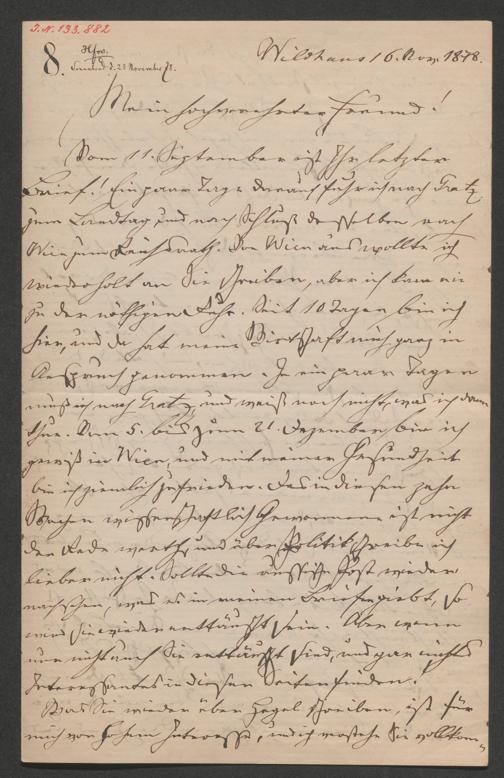 I.N. 133.882
8.
Wildhaus 16. Nov. 1878.
Mein hochverehrter Freund!
Vom 11. September ist Ihr letzter
Brief! Ein paar Tage darauf fuhr ich nach Gratz
zum Landtag und nach Schluß desselben nach
Wien zum Reichsrath. Von Wien aus wollte ich
wiederholt an Sie schreiben, aber ich kam nie
zu der nöthigen Ruhe. Seit 10 Tagen bin ich
hier, und da hat meine Wirtschaft mich ganz in
Anspruch genommen. In ein paar Tagen
muß ich nach Gratz, und weiß noch nicht, was ich dann
thue. Vom 5. bis zum 21. Dezember bin ich
gewiß in Wien, und mit meiner Gesundheit
bin ich ziemlich zufrieden. Das in diesen zehn
Wochen wissenschaftlich Gewonnene ist nicht
der Rede werth, und über Politik schreibe ich
lieber nicht. Sollte die russische Post wieder
nachsehen, was es in meinen Briefen giebt, so
wird sie wieder enttäuscht sein. Aber wenn
nur nicht auch Sie enttäuscht sind, und gar nichts
Interessantes in diesen Seiten finden!
Was Sie wieder über Hegel schreiben, ist für
mich von hohem Interesse, und ich verstehe Sie vollkom-